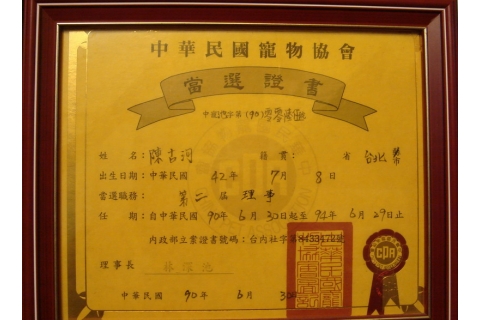 中華民國寵物協會
當選證書
中寵鴻字第(90)零零陸伍號
姓名：陳吉河 籍貫： 省 台北 縣市
出生日期：中華民國 42年 7月 8日
當選職務：第二屆 理事
任期：自中華民國 90年 6月 30日起至 92年 6月 29日止
內政部立案證書號碼：台內社字第8433172號
理事長
中華民國 90年 6月 30日
CDA